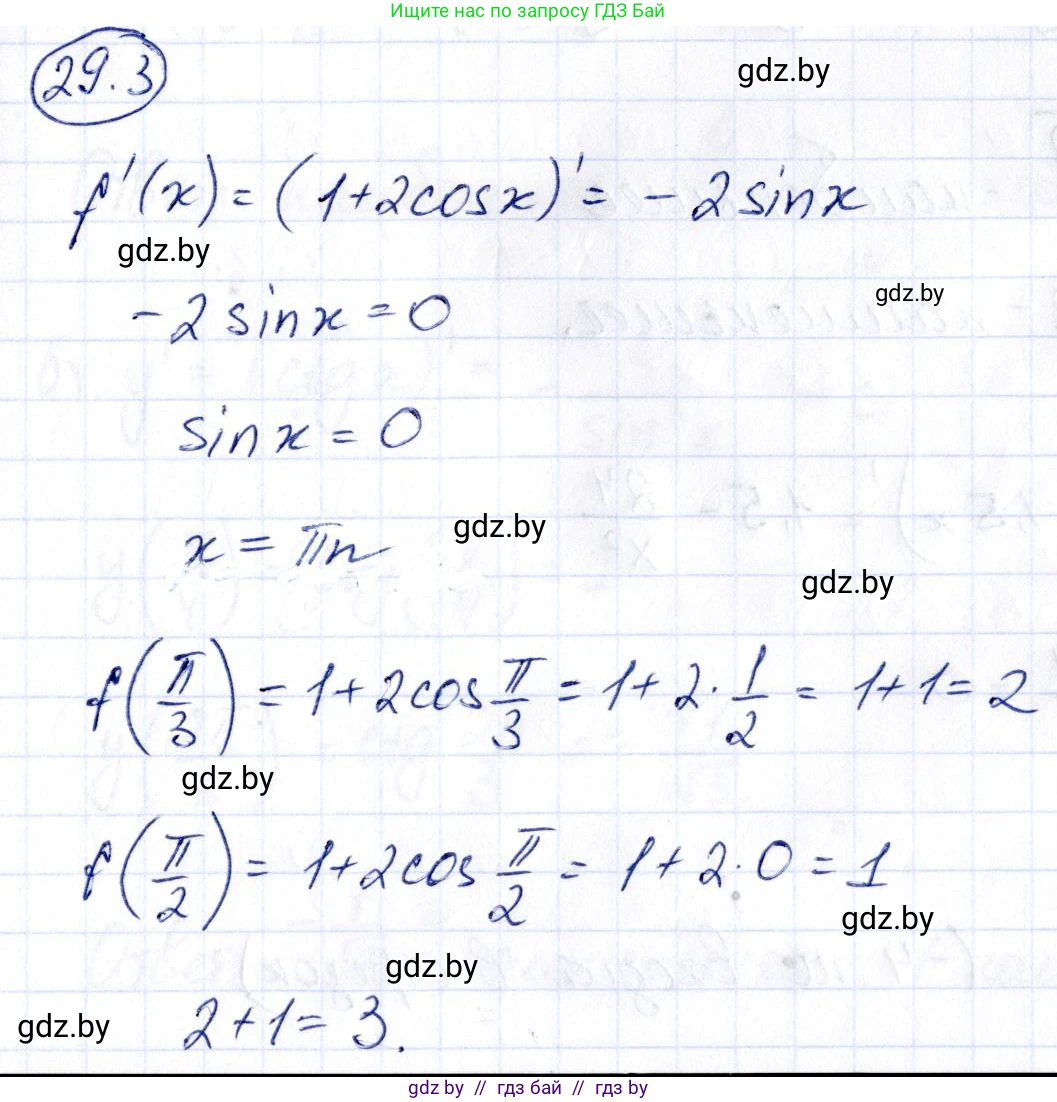 Ищите нас по запросу ГДЗ Бай
29.3
gdz.by
f'(x) = (1+2cosx)' = -2sinx
gdz.by
gdz.by
-2sinx = 0
sinx = 0
gdz.by
x = πn
gdz.by
f(π/3) = 1+2cos π/3 = 1+2·1/2 = 1+1=2
gdz.by
f(π/2) = 1+2cos π/2 = 1+2·0=1
gdz.by
gdz.by
gdz.by
2+1=3.
gdz by // гдз бай // гдз by